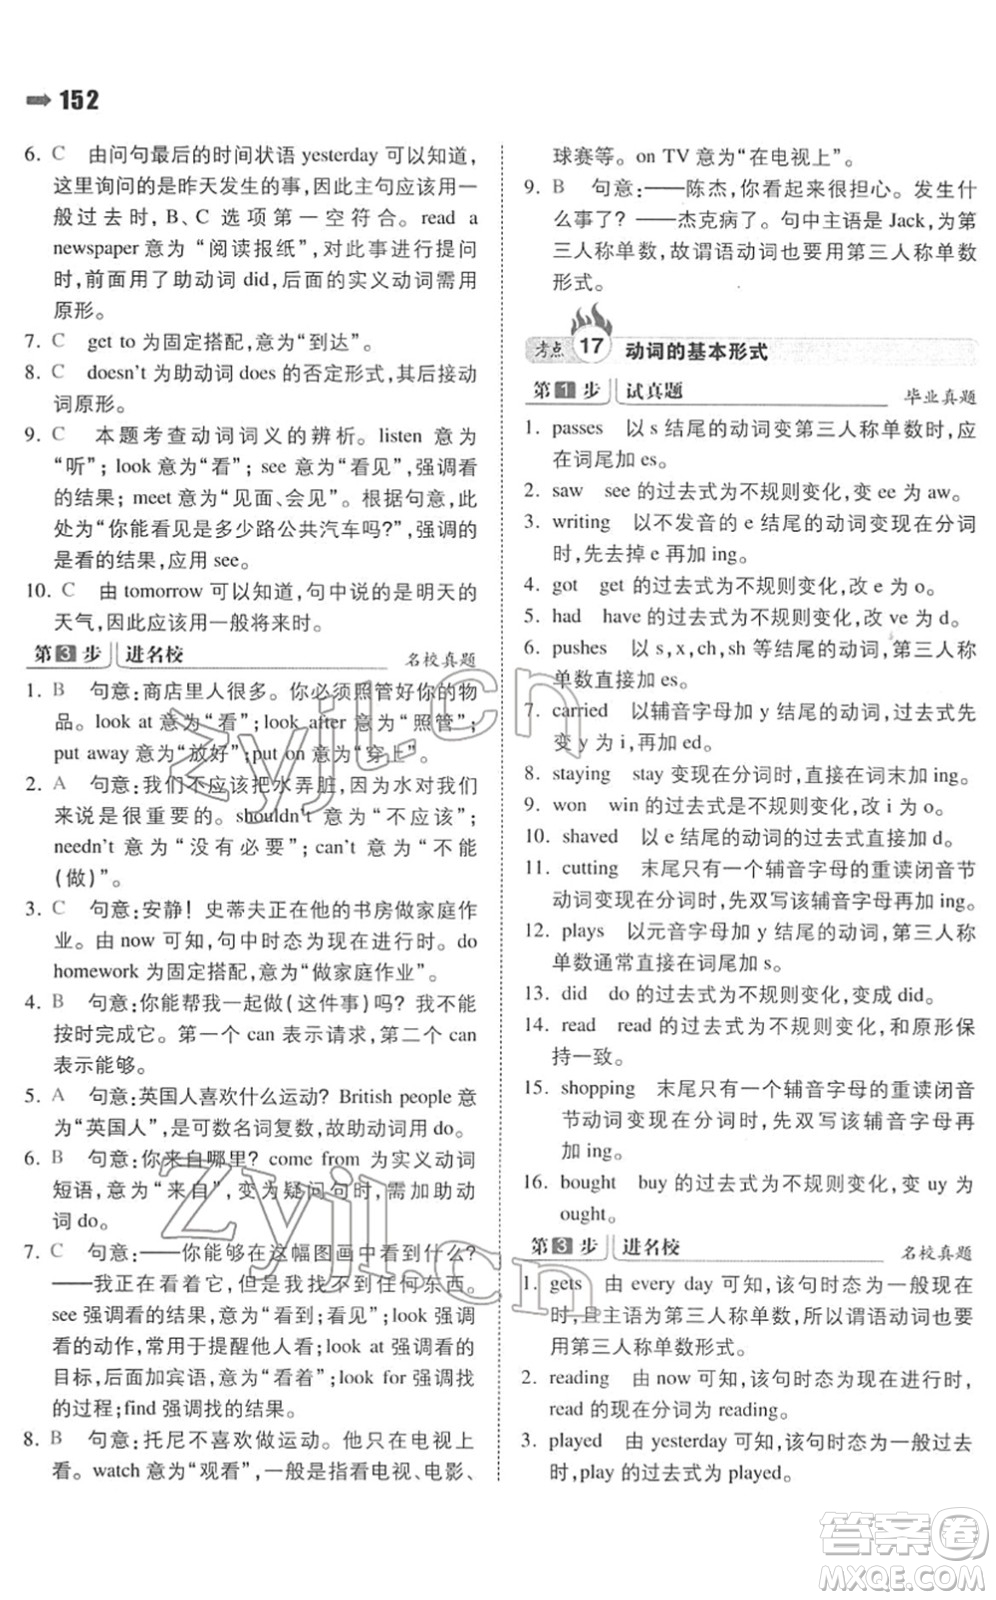 152
6. C 由问句最后的时间状语 yesterday 可以知道，
这里询问的是昨天发生的事，因此主句应该用一
般过去时，B、C 选项第一空符合。read a
newspaper 意为“阅读报纸”，对此事进行提问
时，前面用了助动词 did，后面的实义动词需用
原形。
7. C get to 为固定搭配，意为“到达”。
8. C doesn't 为助动词 does 的否定形式，其后接动
词原形。
9. C 本题考查动词词义的辨析。listen 意为
“听”；look 意为“看”；see 意为“看见”，强调看
的结果；meet 意为“见面、会见”。根据句意，此
处为“你能看见是多少路公共汽车吗？”，强调的
是看的结果，应用 see。
10. C 由 tomorrow 可以知道，句中说的是明天的
天气，因此应该用一般将来时。
第3步 进名校 名校真题
1. B 句意：商店里人很多。你必须照管好你的物
品。look at 意为“看”；look after 意为“照管”；
put away 意为“放好”；put on 意为“穿上”。
2. A 句意：我们不应该把水弄脏，因为水对我们
来说是非常重要的。shouldn't 意为“不应该”；
needn't 意为“没有必要”；can't 意为“不能
（做）”。
3. C 句意：安静！史蒂夫正在他的书房做家庭作
业。由 now 可知，句中时态为现在进行时。do
homework 为固定搭配，意为“做家庭作业”。
4. B 句意：你能帮我一起做（这件事）吗？我不能
按时完成它。第一个 can 表示请求，第二个 can
表示能够。
5. A 句意：英国人喜欢什么运动？British people 意
为“英国人”，是可数名词复数，故助动词用 do。
6. B 句意：你来自哪里？come from 为实义动词
短语，意为“来自”，变为疑问句时，需用助动
词 do。
7. C 句意：——你能够在这幅图画中看到什么？
——我正在看着它，但我没看到任何东西。
see 强调看的结果，意为“看到；看见”；look 强调
看的动作，常用于提醒他人看；look at 强调看的
目标，后加宾语，意为“看着”；look for 强调找
的过程；find 强调找的结果。
8. B 句意：托尼不喜欢做运动。他在电视上
看。watch 意为“观看”，一般是指看电视、电影、
球赛等。on TV 意为“在电视上”。
9. B 句意：——陈杰，你看起来很担心。发生什
么事了？——杰克病了。句中主语是 Jack，为第
三人称单数，故谓语动词也要用第三人称单数
形式。
考点 17 动词的基本形式
第1步 试真题 毕业真题
1. passes 以 s 结尾的动词变第三人称单数时，应
在词尾加 es。
2. saw see 的过去式为不规则变化，变 ee 为 aw。
3. writing 以不发音的 e 结尾的动词变现在分词
时，先去掉 e 再加 ing。
4. got get 的过去式为不规则变化，改 e 为 o。
5. had have 的过去式为不规则变化，改 ve 为 d。
6. pushes 以 s，x，ch，sh 等结尾的动词，第三人称
单数直接加 es。
7. carried 以辅音字母加 y 结尾的动词，过去式先
变 y 为 i，再加 ed。
8. staying stay 变现在分词时，直接在词末加 ing。
9. won win 的过去式为不规则变化，改 i 为 o。
10. shaved 以 e 结尾的动词的过去式直接加 d。
11. cutting 末尾只有一个辅音字母的重读闭音节
动词变现在分词时，先双写该辅音字母再加 ing。
12. plays 以元音字母加 y 结尾的动词，第三人称
单数通常直接在词尾加 s。
13. did do 的过去式为不规则变化，变成 did。
14. read read 的过去式为不规则变化，和原形保
持一致。
15. shopping 末尾只有一个辅音字母的重读闭音
节动词变现在分词时，先双写该辅音字母再
加 ing。
16. bought buy 的过去式为不规则变化，变 uy 为
ought。
第3步 进名校 名校真题
1. gets 由 every day 可知，该句时态为一般现在
时，且主语为第三人称单数，所以谓语动词也要
用第三人称单数形式。
2. reading 由 now 可知，该句时态为现在进行时，
read 的现在分词为 reading。
3. played 由 yesterday 可知，该句时态为一般过去
时，play 的过去式为 played。
zyjl.cn
zyjl.cn
答案圈
MXQE.COM